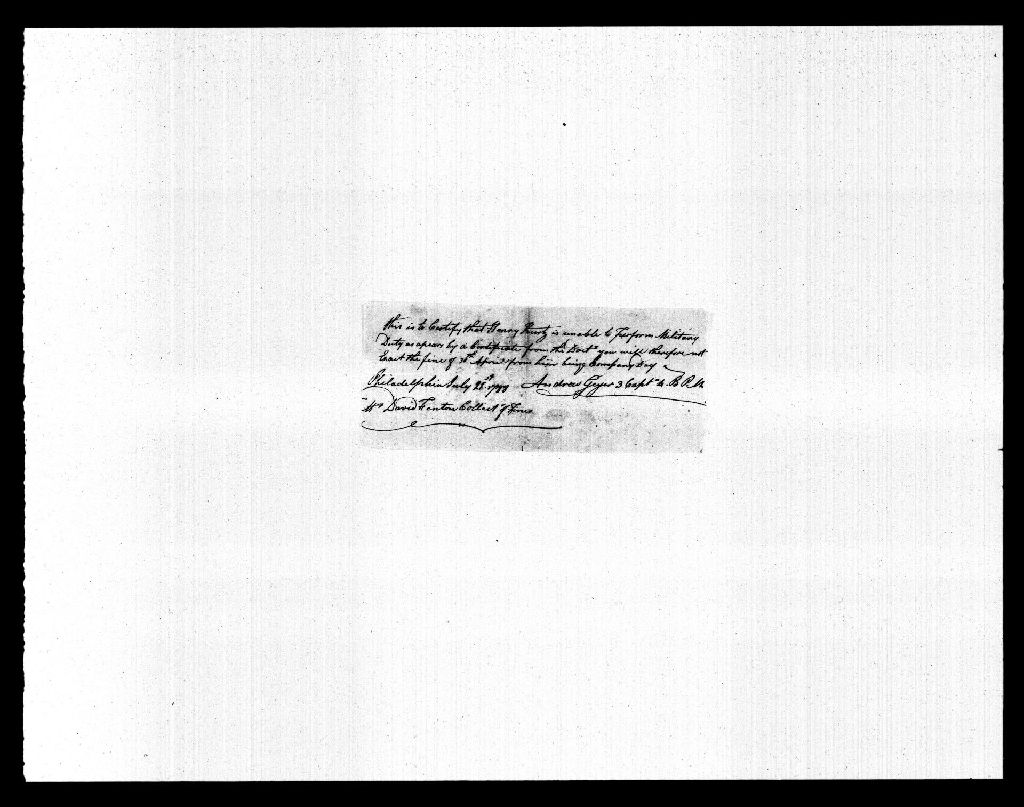 this is to Certify that Henry is unable to Perform Military
Duty as apears by a Certificate from the Doctr you will therefore not
Exact the fine of 30th April from him being Company Day
Philadelphia July 21st Andrew Geyer 3 Capt 4 B P M
Mr David Fenton Collect of Fines